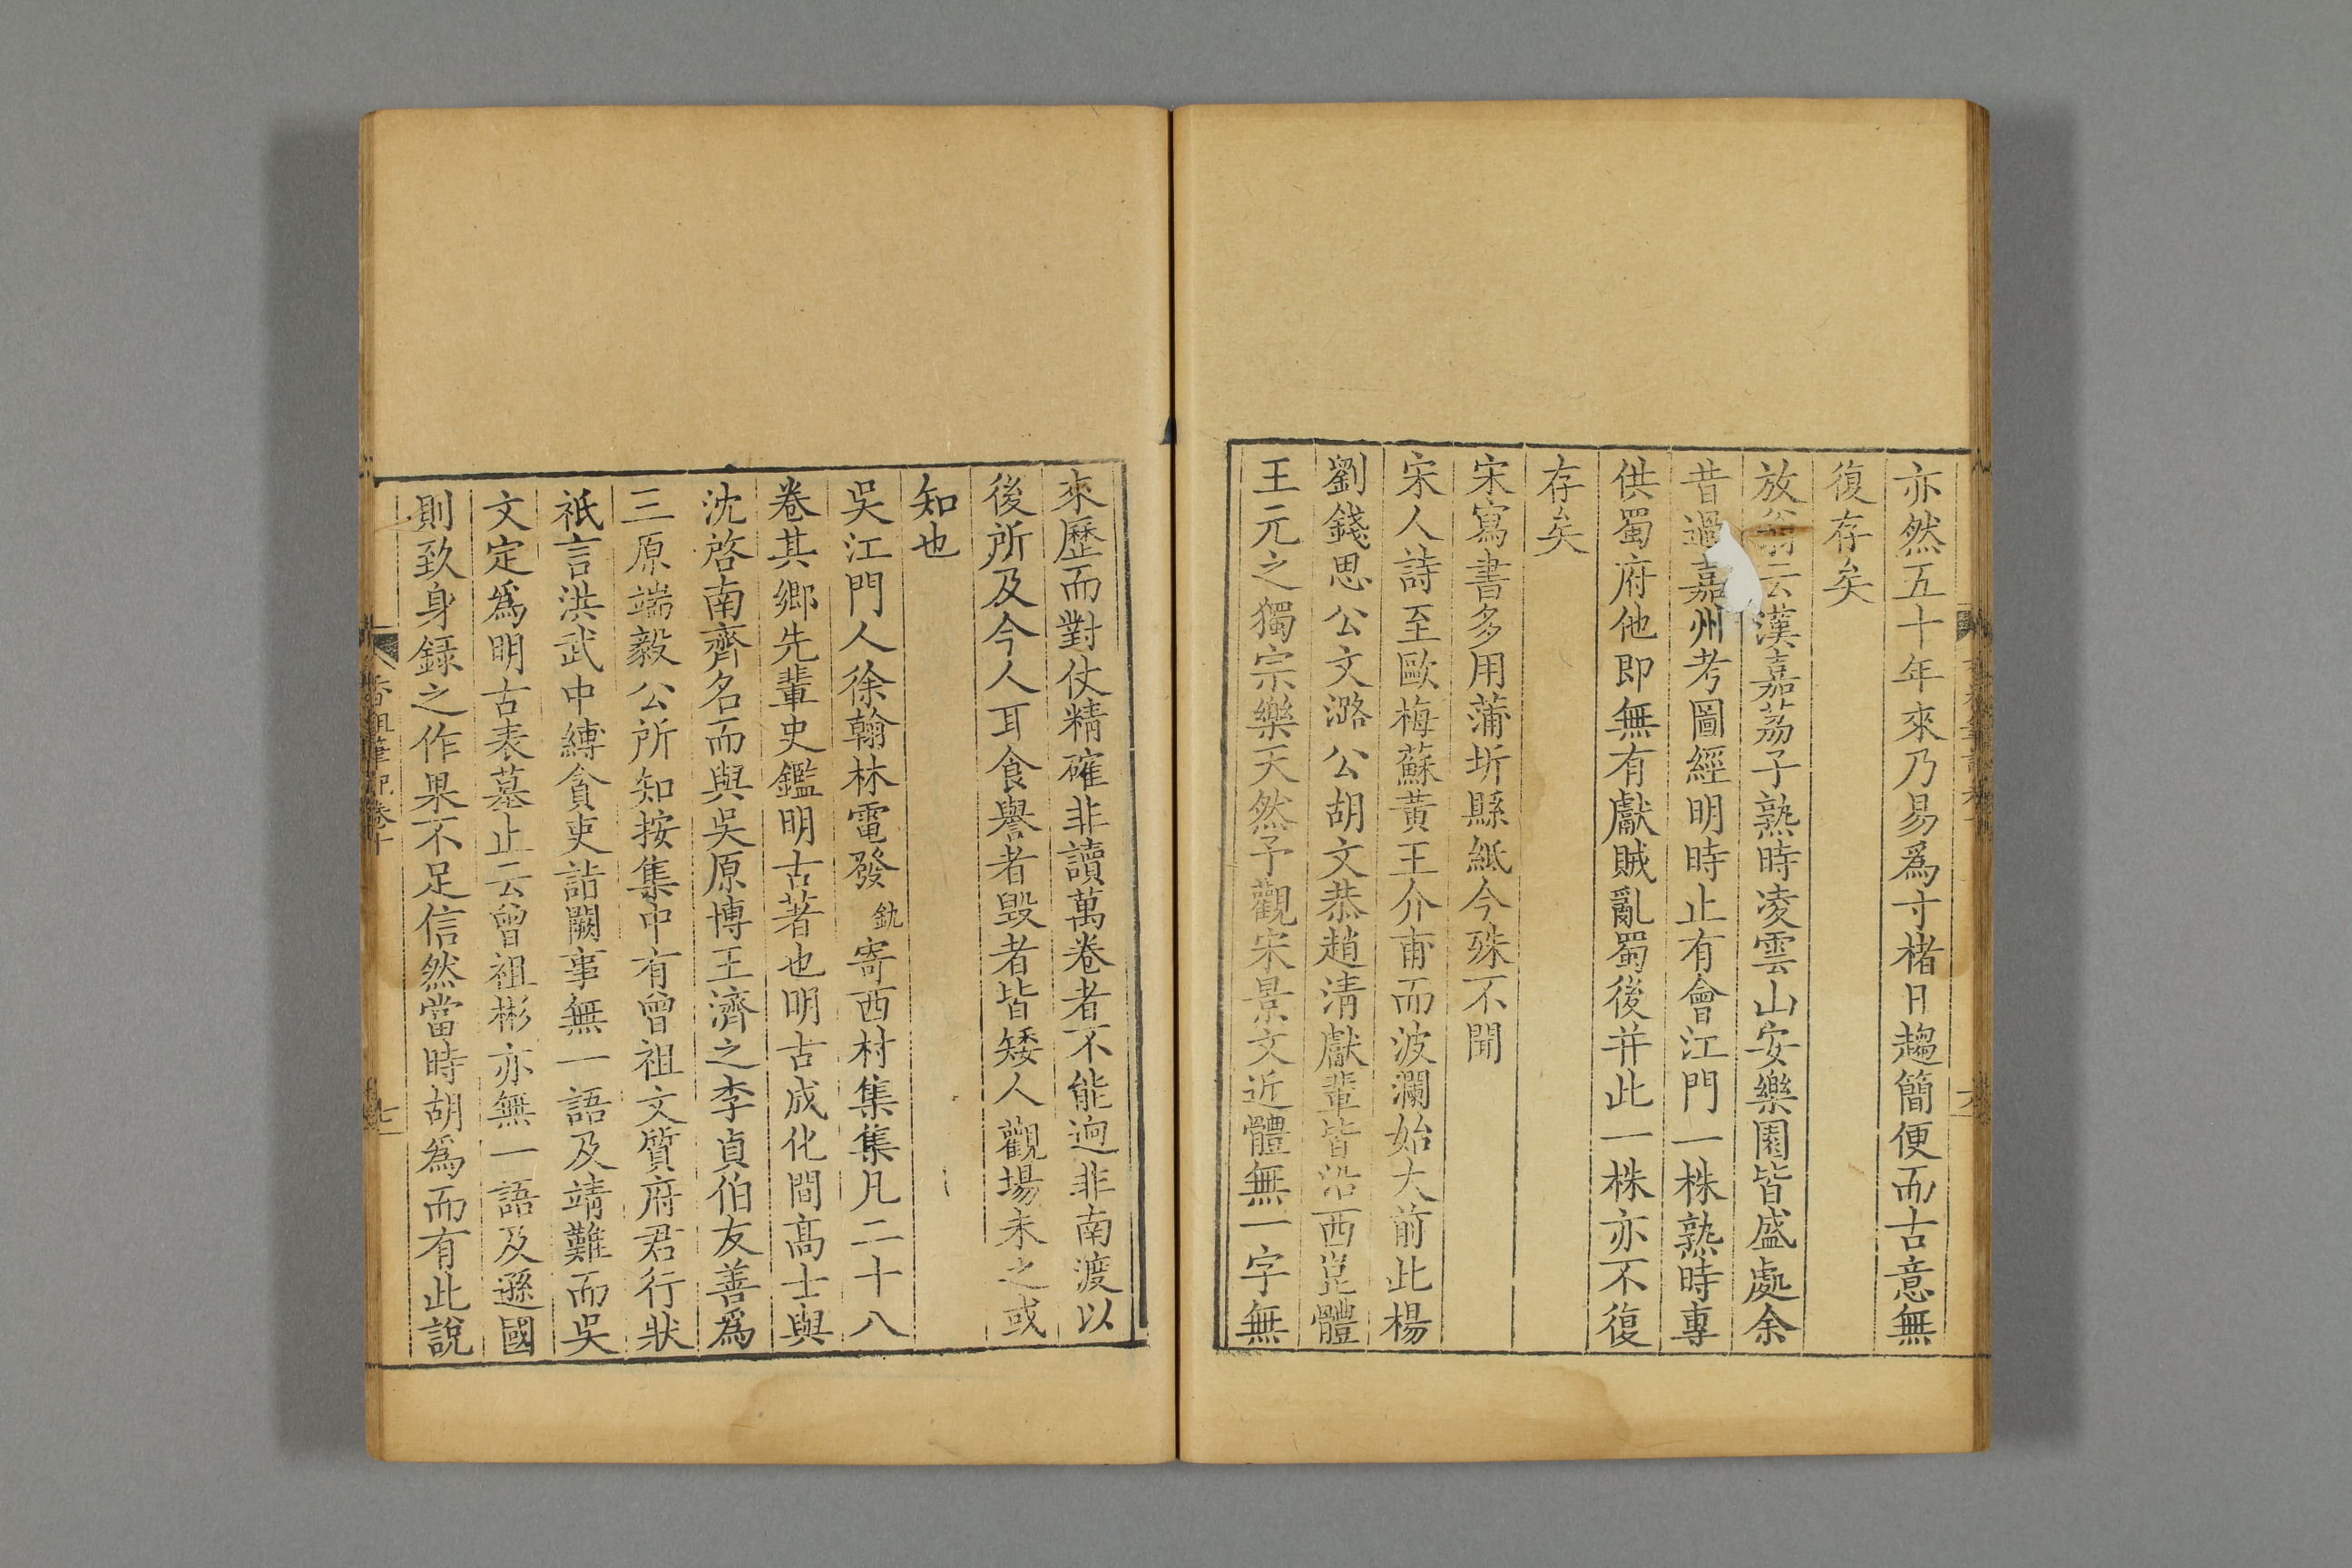 亦然五十年來乃易爲寸楮日趨簡便而古意無
復存矣
放翁云漢嘉荔子熟時凌雲山安樂園皆盛處余
昔過嘉州考圖經明時止有會江門一株熟時專
供蜀府他即無有獻賊亂蜀後并此一株亦不復
存矣
宋寫書多用蒲圻縣紙今殊不聞
宋人詩至歐梅蘇黃王介甫而波瀾始大前此楊
劉錢思公文潞公胡文恭趙清獻輩皆沿西崑體
王元之獨宗樂天然予觀宋景文近體無一字無
來歷而對仗精確非讀萬卷者不能迥非南渡以
後所及今人耳食譽者毀者皆矮人觀場未之或
知也
吳江門人徐翰林電發釚寄西村集集凡二十八
卷其鄉先輩史鑑明古著也明古成化間高士與
沈啓南齊名而與吳原博王濟之李貞伯友善爲
三原端毅公所知按集中有曾祖文質府君行狀
祇言洪武中縛貪吏詣闕事無一語及靖難而吳
文定爲明古表墓止云曾祖彬亦無一語及遜國
則致身録之作果不足信然當時胡爲而有此說
香祖筆記卷十
七